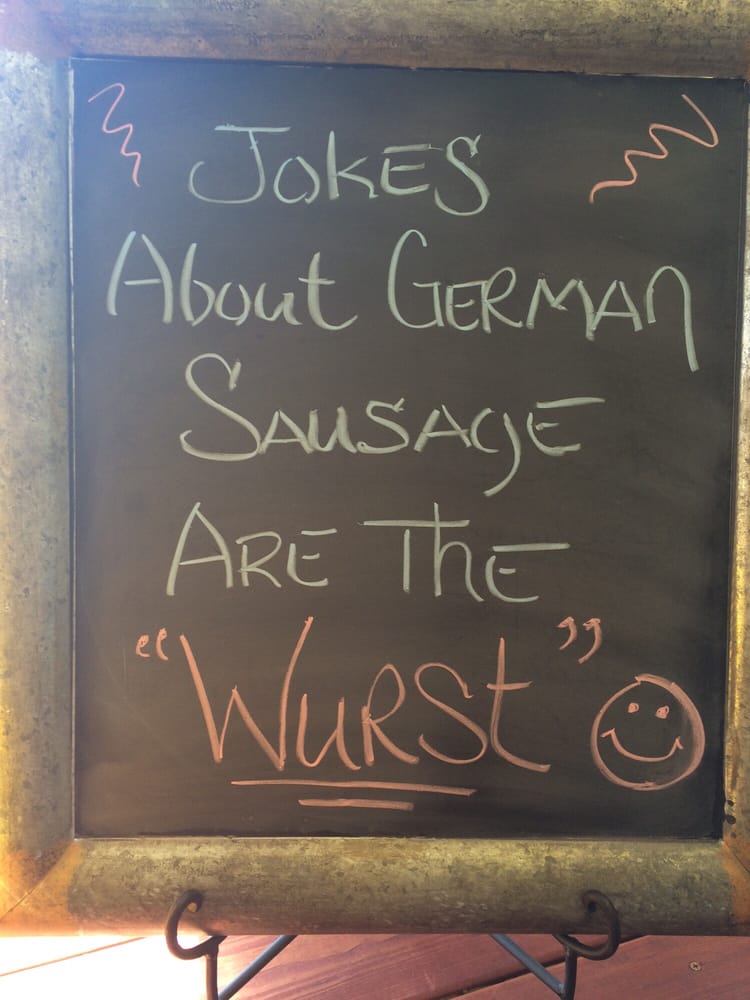 JOKES
ABOUT GERMAN
SAUSAGE
ARE THE
“WURST”